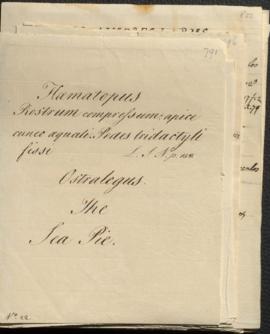 791
Hamatopus
Rostrum compressum: apice
cuneo aquali. Pedes tridactyli
fissi L. S. N. p.
Ostralegus.
The
Sea Pie.